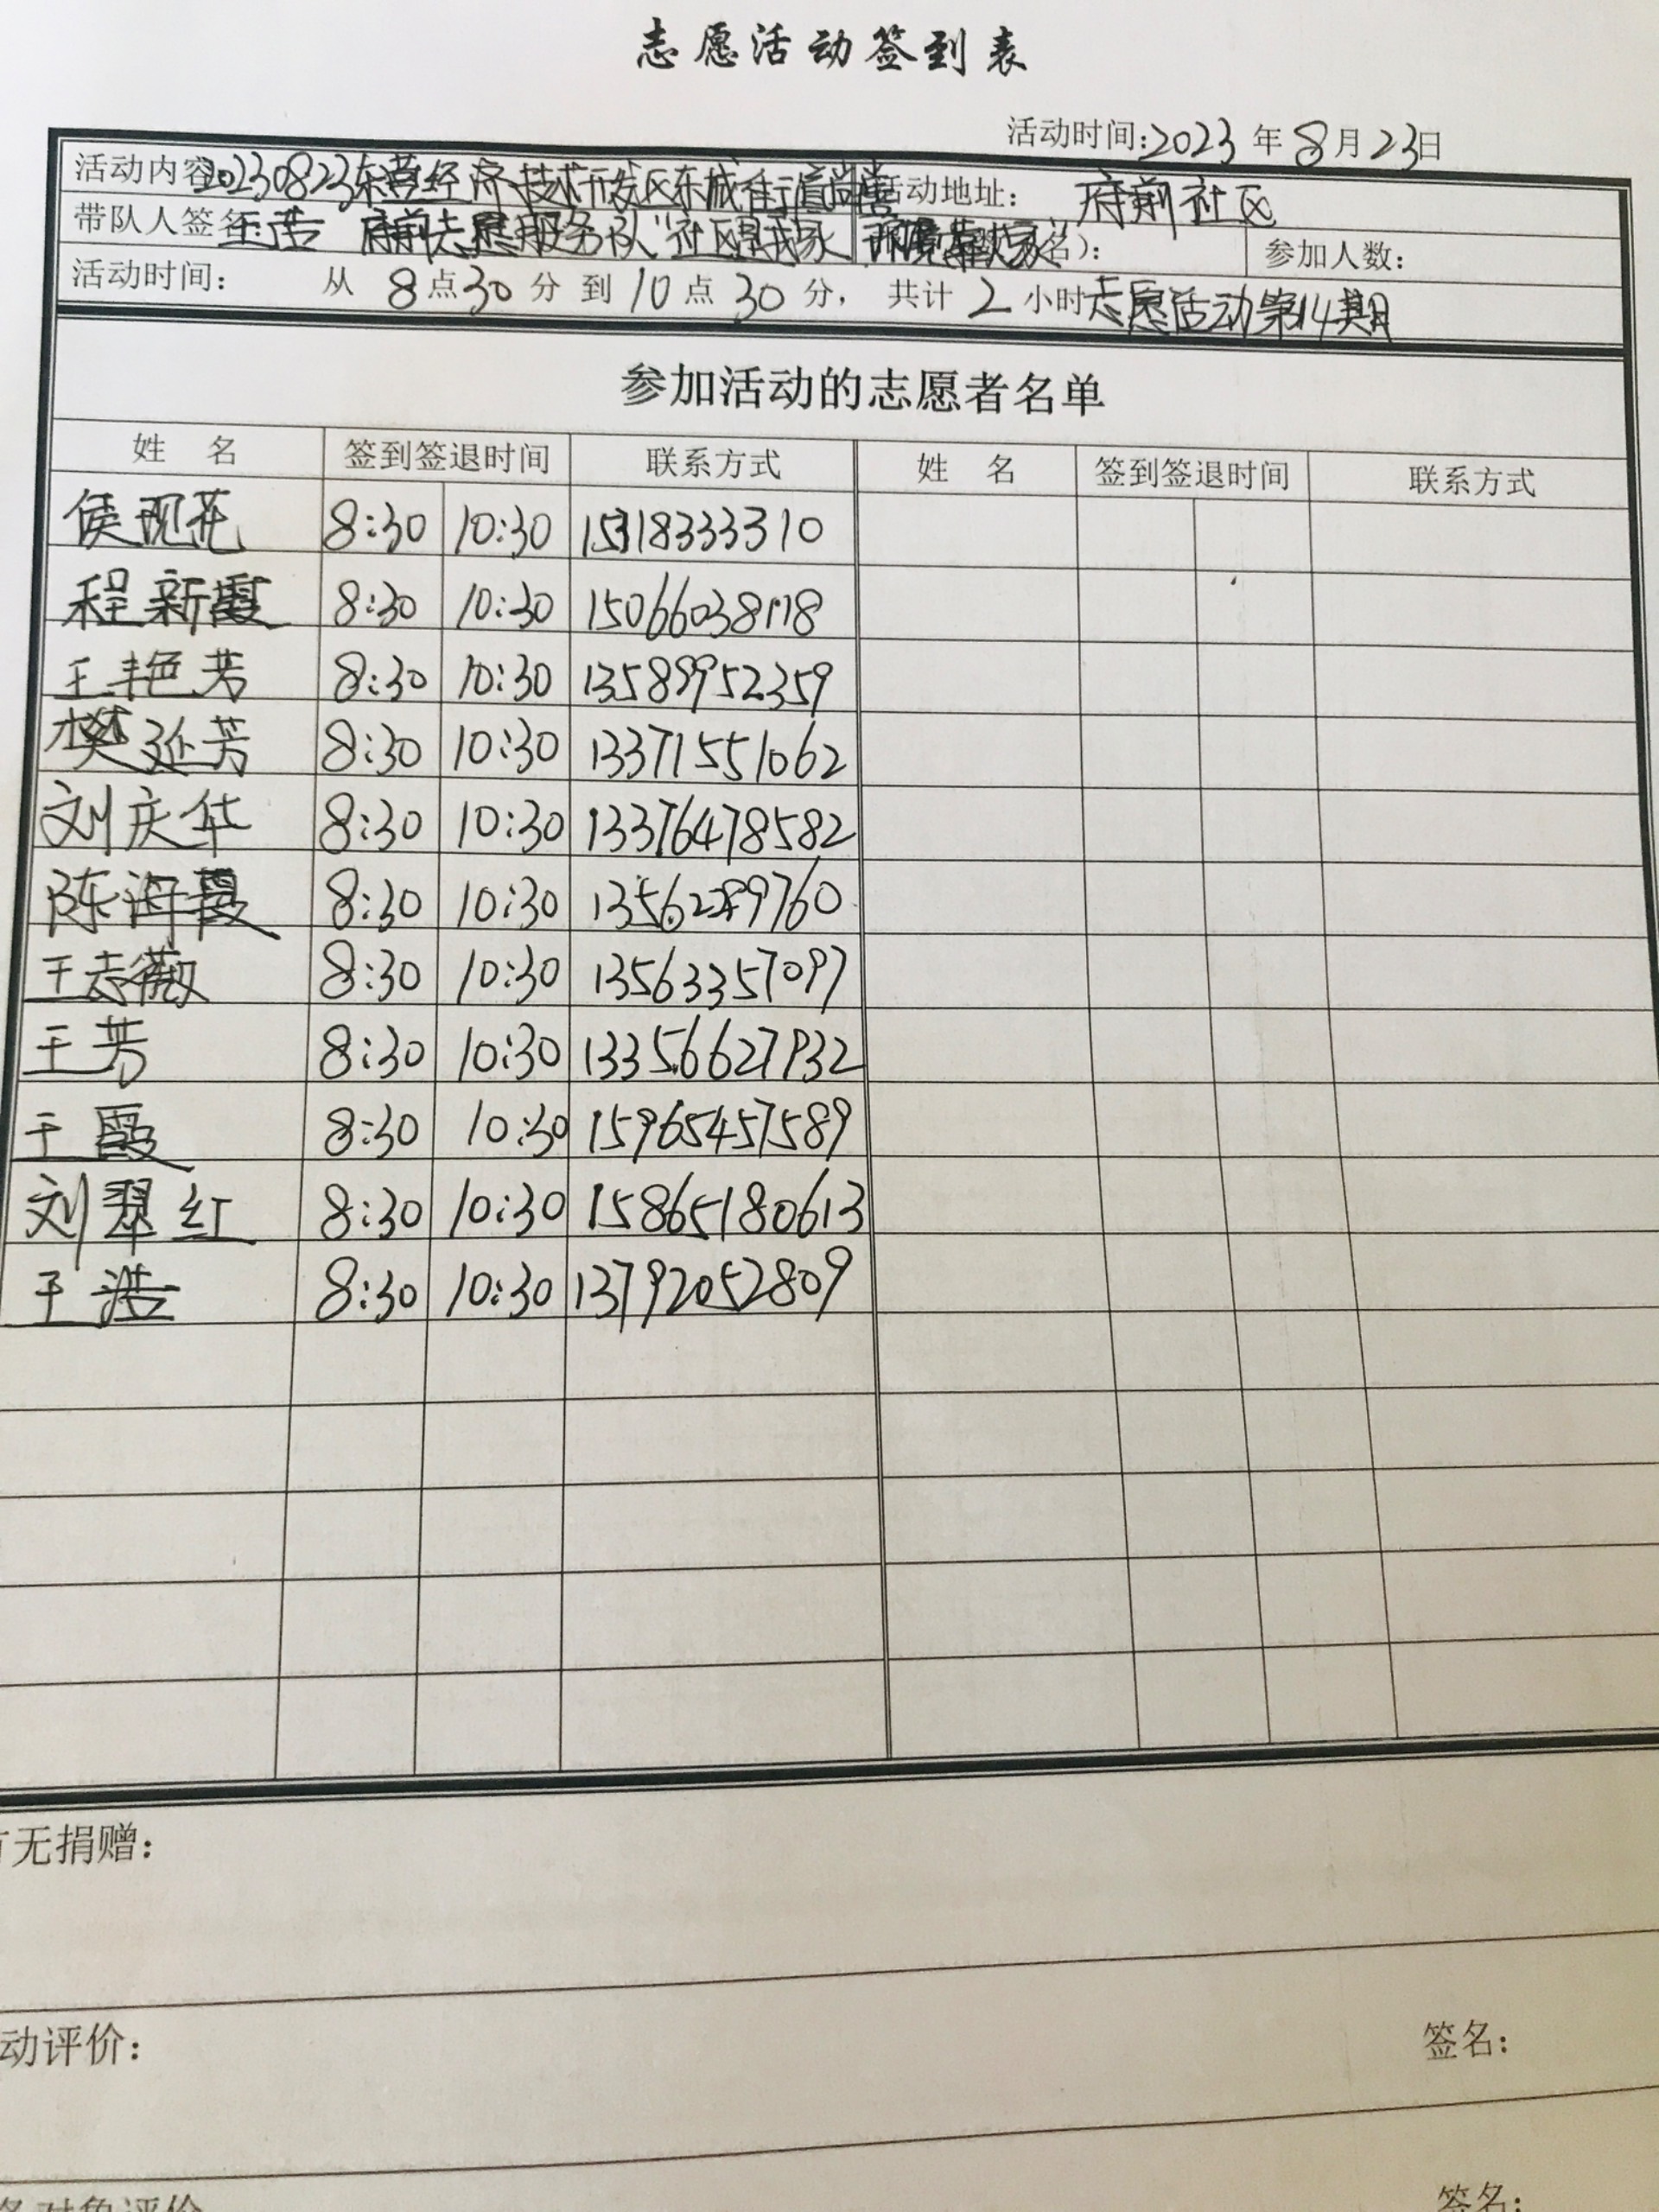 志愿活动签到表
活动时间:2023年8月23日
活动内容:20230823东营经济技术开发区东城街道尚营 活动地址: 府前社区
带队人签名:王浩 府前志愿服务队"社区是我家 环境靠大家" 名): 参加人数:
活动时间: 从 8点30分 到 10点30分, 共计 2 小时 志愿活动第14期
参加活动的志愿者名单
姓 名 签到签退时间 联系方式 姓 名 签到签退时间 联系方式
侯现花 8:30 10:30 15318333310
程新霞 8:30 10:30 15066038118
王艳芳 8:30 10:30 13589952359
樊延芳 8:30 10:30 13371551062
刘庆华 8:30 10:30 13376478582
陈海霞 8:30 10:30
王志薇 8:30 10:30 13563357097
王芳 8:30 10:30 13356627932
王霞 8:30 10:30 15965457589
刘翠红 8:30 10:30 15865180613
王浩 8:30 10:30 13792052809
有无捐赠:
动评价: 签名:
对象评价 签名: